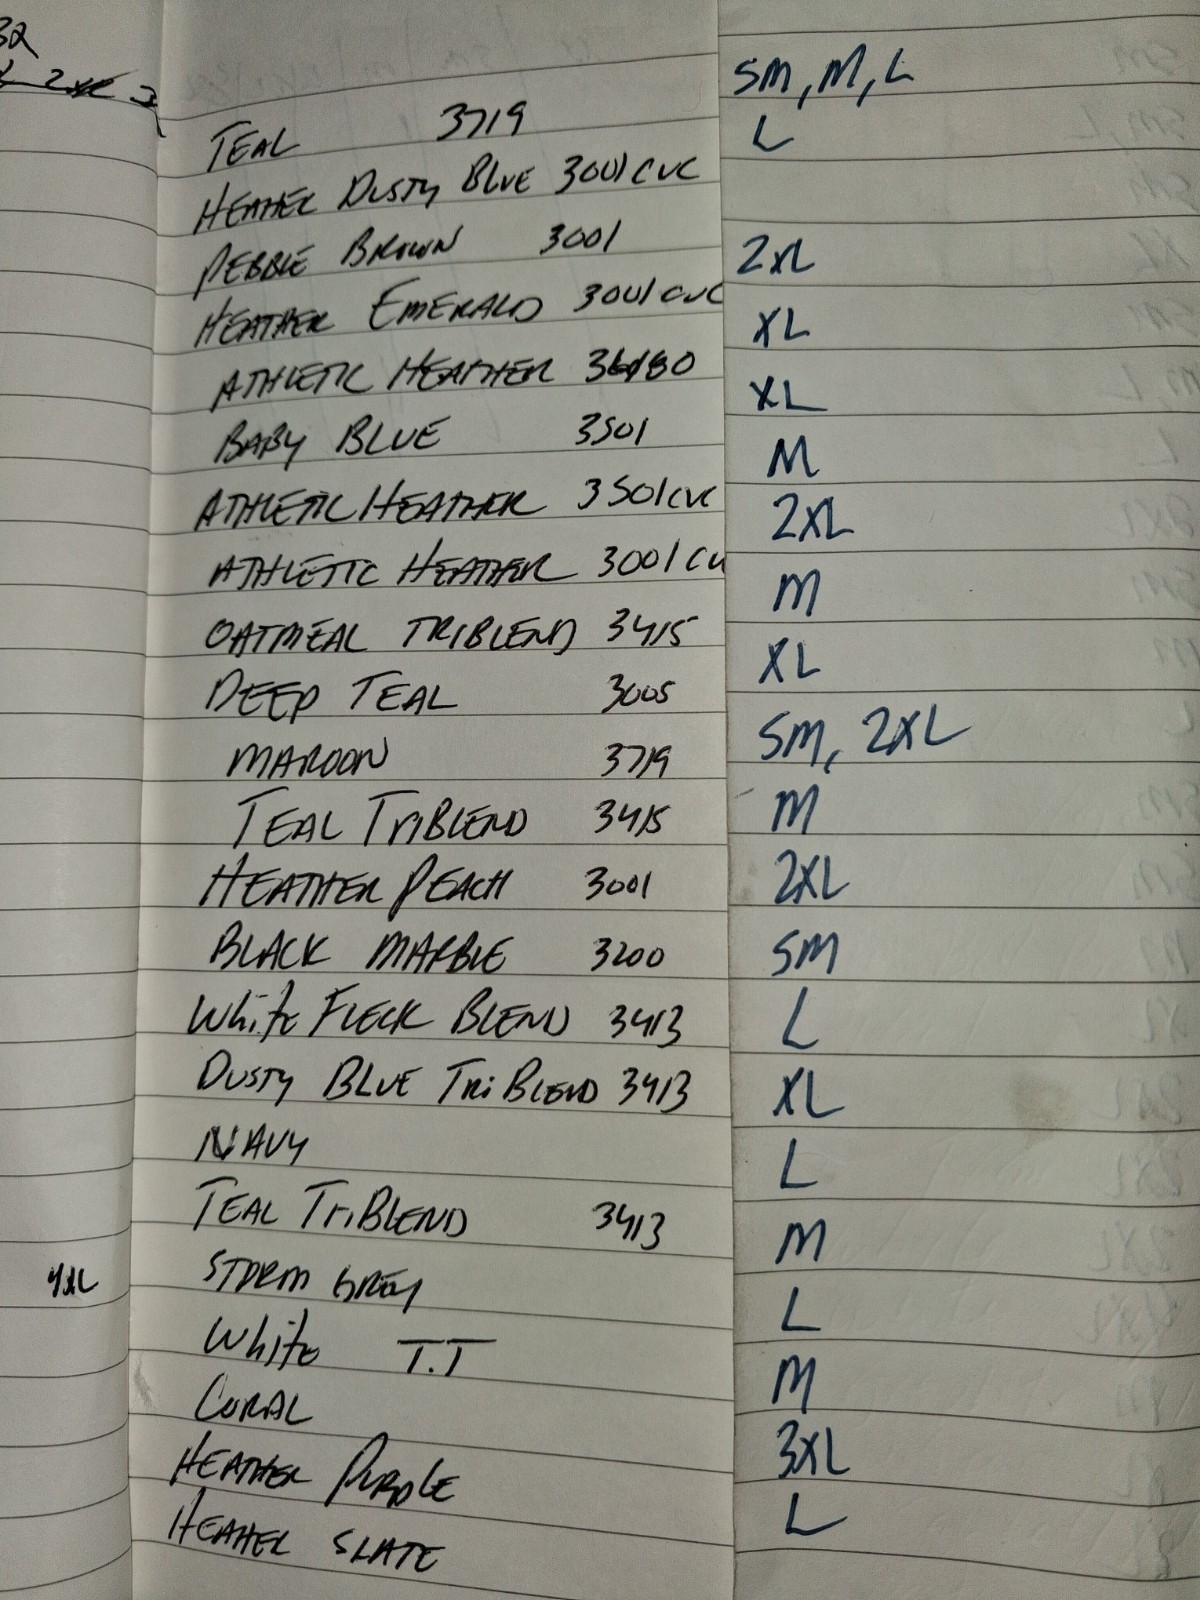 32
2XL 3
TEAL 3719
HEATHER DUSTY BLUE 3001CVC
PEBBLE BROWN 3001
HEATHER EMERALD 3001CVC
ATHLETIC HEATHER
BABY BLUE 3501
ATHLETIC HEATHER 3501CVC
ATHLETIC HEATHER 3001CV
OATMEAL TRIBLEND 3415
DEEP TEAL 3005
MAROON 3719
TEAL TRIBLEND 3415
HEATHER PEACH 3001
BLACK MARBLE 3200
White FLECK BLEND 3413
DUSTY BLUE TRiBLEND 3413
NAVY
TEAL TRiBLEND 3413
4XL
STORM GREY
White T.T
CORAL
HEATHER PURPLE
HEATHER SLATE
SM, M, L
L
2XL
XL
XL
M
2XL
M
XL
SM, 2XL
M
2XL
SM
L
XL
L
M
L
M
3XL
L